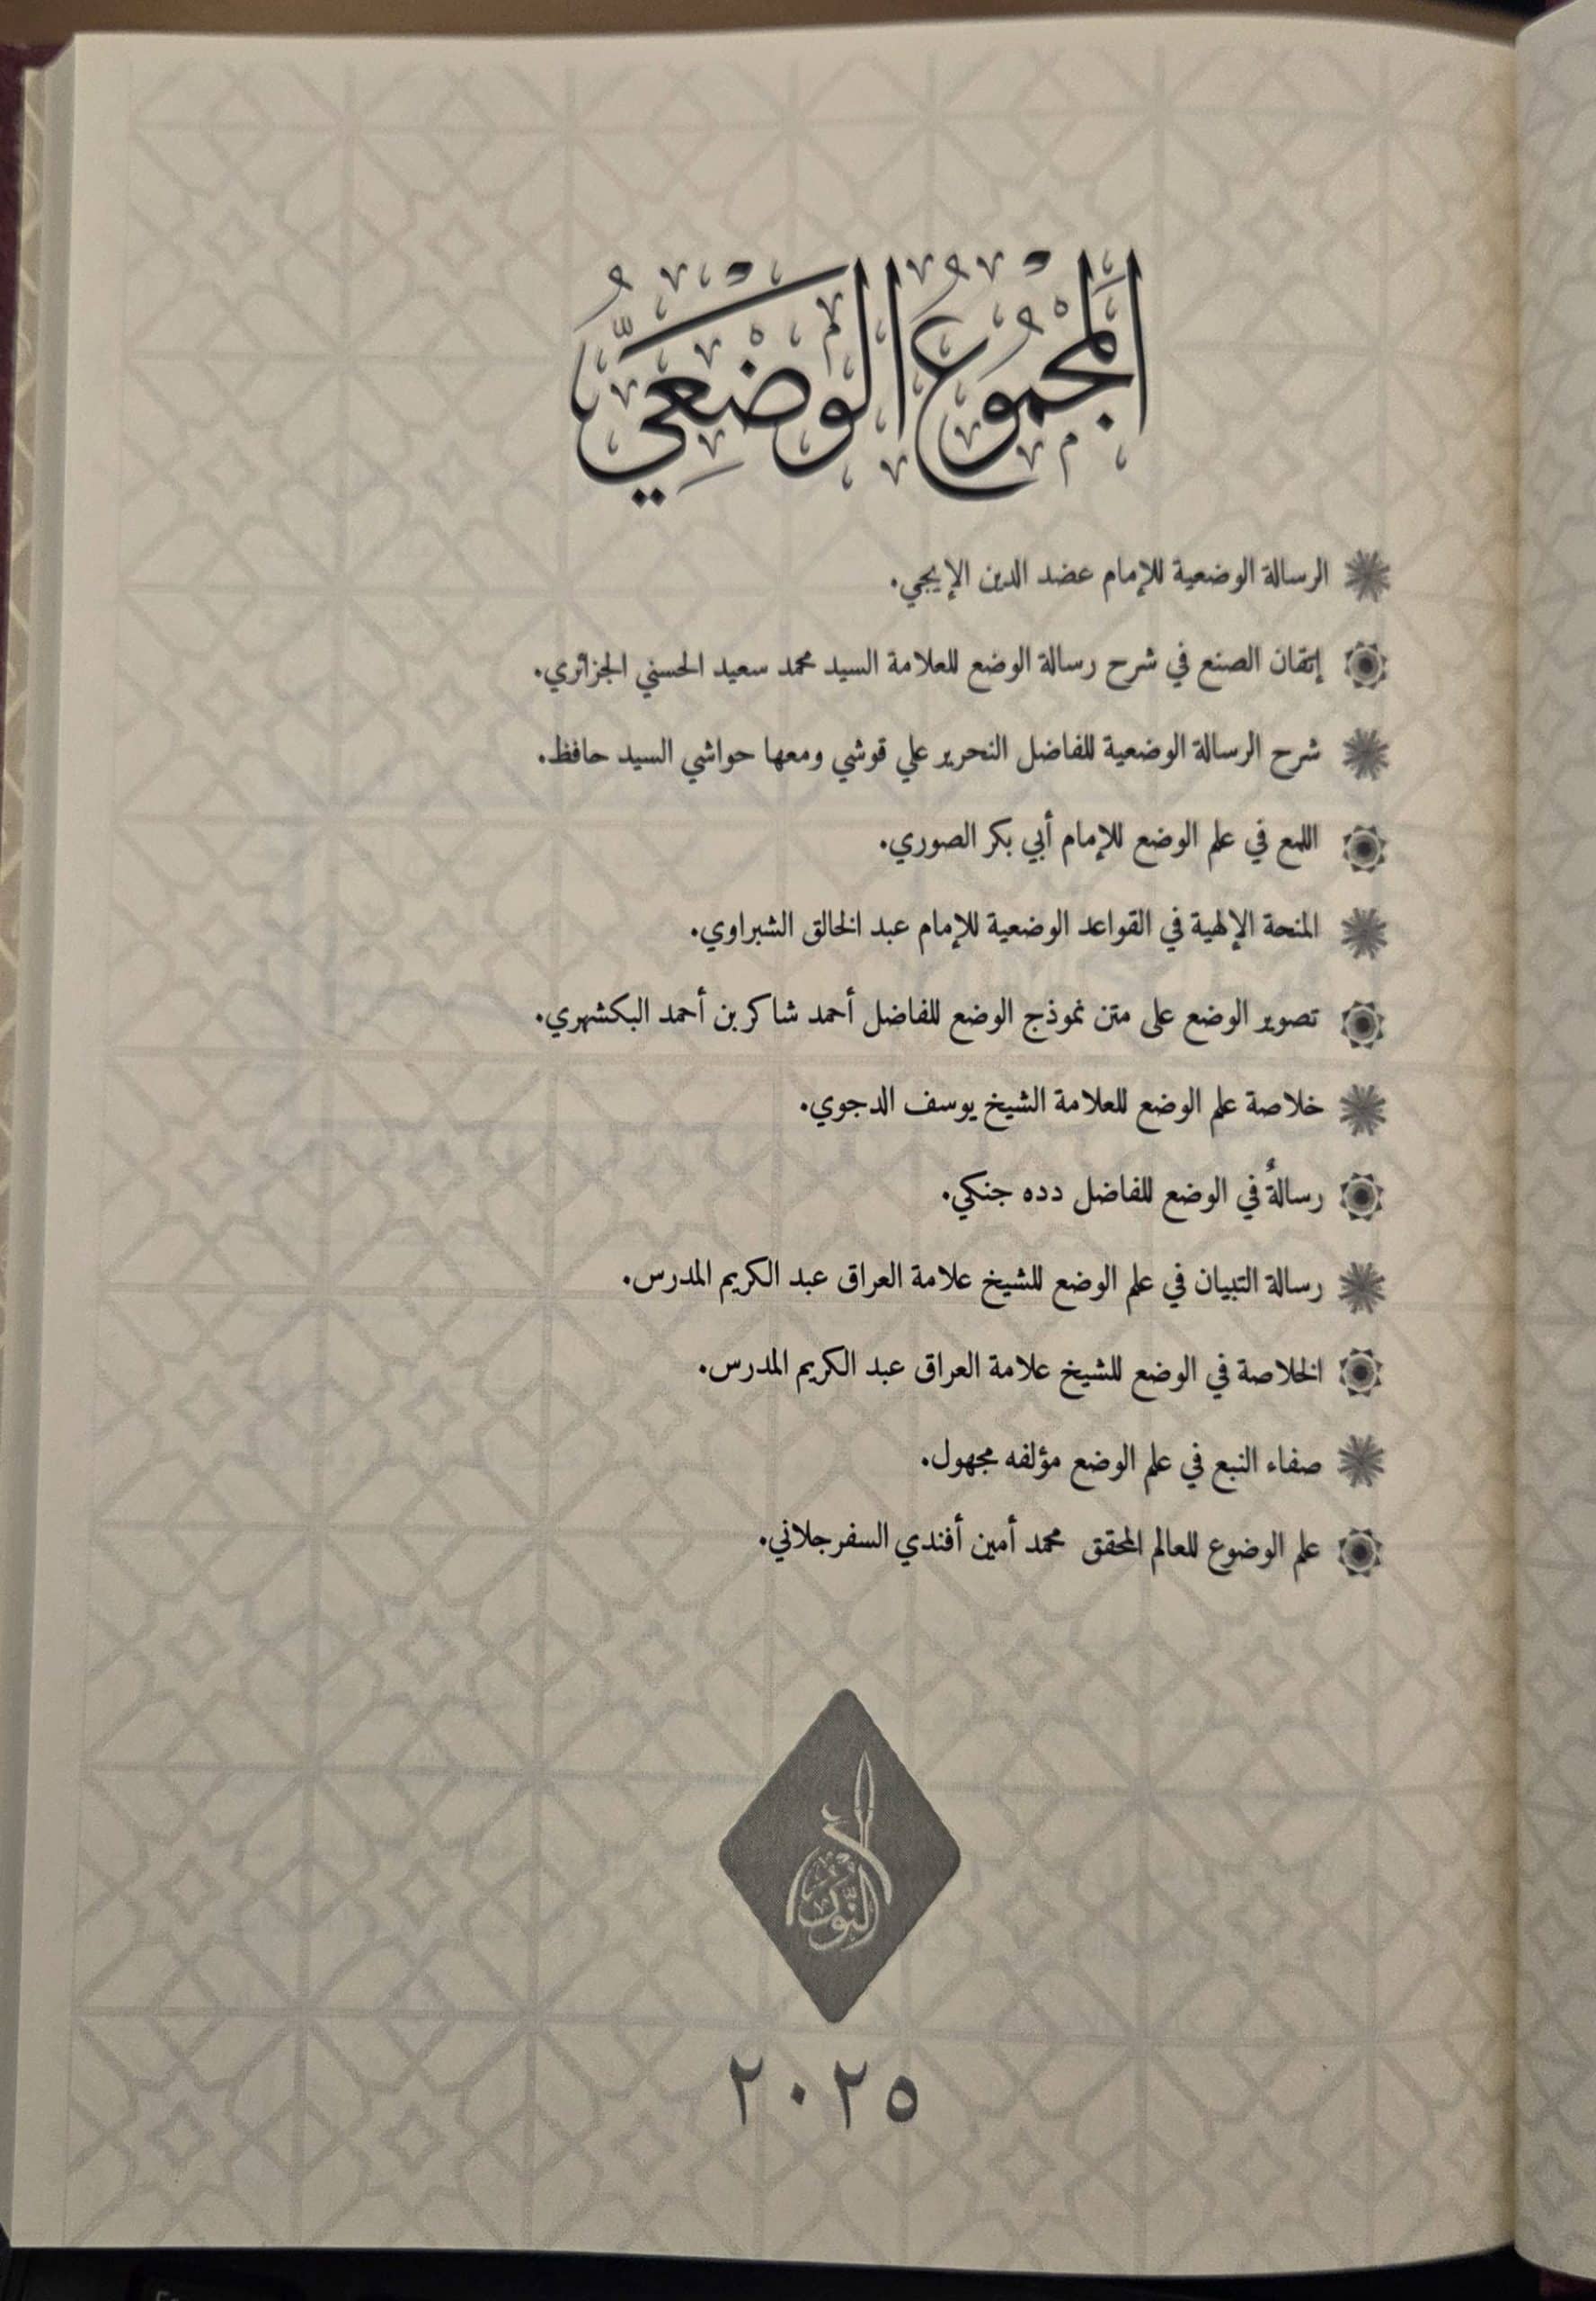 المَجْمُوعُ الوَضْعِيُّ
الرسالة الوضعية للإمام عضد الدين الإيجي.
إتقان الصنع في شرح رسالة الوضع للعلامة السيد محمد سعيد الحسني الجزائري.
شرح الرسالة الوضعية للفاضل النحرير علي قوشي ومعها حواشي السيد حافظ.
اللمع في علم الوضع للإمام أبي بكر الصوري.
المنحة الإلهية في القواعد الوضعية للإمام عبد الخالق الشبراوي.
تصوير الوضع على متن نموذج الوضع للفاضل أحمد شاكر بن أحمد البكشهري.
خلاصة علم الوضع للعلامة الشيخ يوسف الدجوي.
رسالةٌ في الوضع للفاضل دده جنكي.
رسالة التبيان في علم الوضع للشيخ علامة العراق عبد الكريم المدرس.
الخلاصة في الوضع للشيخ علامة العراق عبد الكريم المدرس.
صفاء النبع في علم الوضع مؤلفه مجهول.
علم الوضوع للعالم المحقق محمد أمين أفندي السفرجلاني.
النور
٢٠٢٥